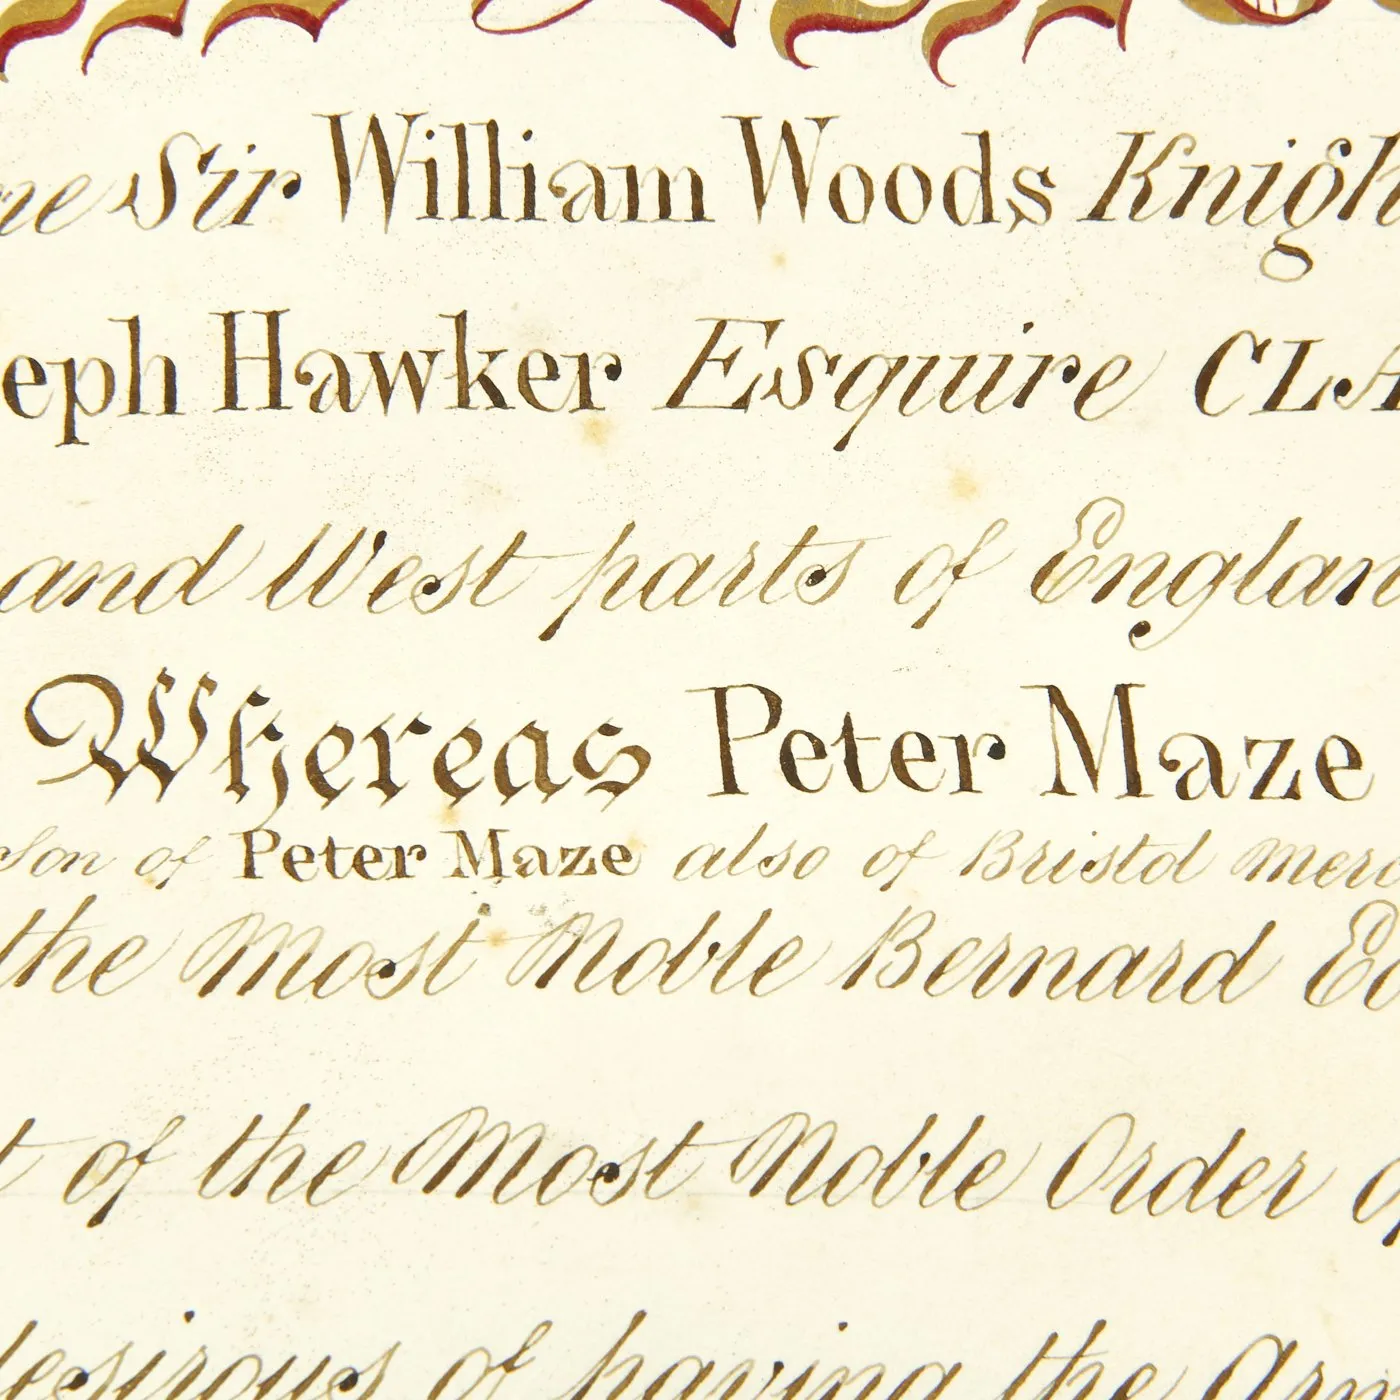 ne Sir William Woods Knigh
eph Hawker Esquire CLA
and West parts of Englan
Whereas Peter Maze
Son of Peter Maze also of Bristol merc
the Most Noble Bernard Ed
t of the Most Noble Order of
desirous of having the Arm